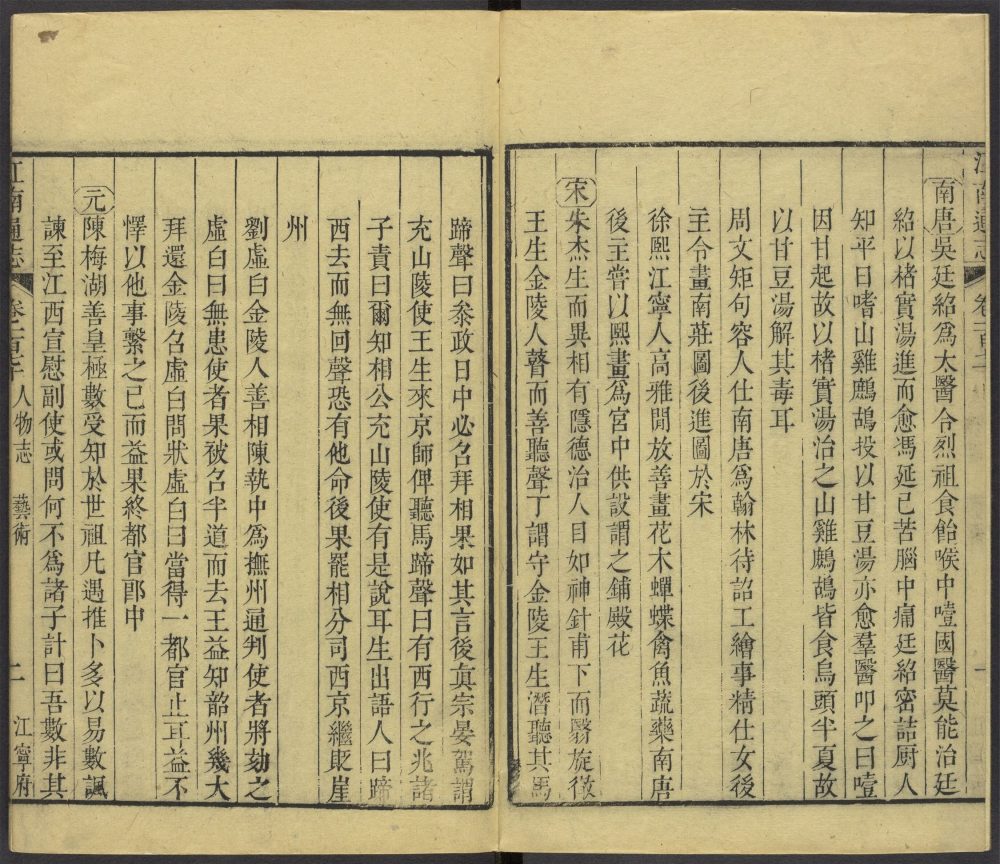 江南通志 卷一百七十 一
南唐吳廷紹爲太醫令烈祖食飴喉中噎國醫莫能治廷
紹以楮實湯進而愈馮延已苦腦中痛廷紹密詰厨人
知平日嗜山雞鷓鴣投以甘豆湯亦愈羣醫叩之曰噎
因甘起故以楮實湯治之山雞鷓鴣皆食烏頭半夏故
以甘豆湯解其毒耳
周文矩句容人仕南唐爲翰林待詔工繪事精仕女後
主令畫南莊圖後進圖於宋
徐熙江寧人高雅閒放善畫花木蟬蝶禽魚蔬藥南唐
後主嘗以熙畫爲宮中供設謂之鋪殿花
宋朱杰生而異相有隱德治人目如神針甫下而翳旋徹
王生金陵人瞽而善聽聲丁謂守金陵王生潛聽其馬
蹄聲曰叅政日中必召拜相果如其言後眞宗晏駕謂
充山陵使王生來京師俾聽馬蹄聲曰有西行之兆諸
子責曰爾知相公充山陵使有是說耳生出語人曰蹄
西去而無回聲恐有他命後果罷相分司西京繼貶崖
州
劉虛白金陵人善相陳執中爲撫州通判使者將劾之
虛白曰無患使者果被召半道而去王益知韶州幾大
拜還金陵召虛白問狀虛白曰當得一都官止耳益不
懌以他事繫之已而益果終都官郎中
元陳梅湖善皇極數受知於世祖凡遇推卜多以易數諷
諫至江西宣慰副使或問何不爲諸子計曰吾數非其
江南通志 卷一百七十 人物志 藝術 二 江寧府